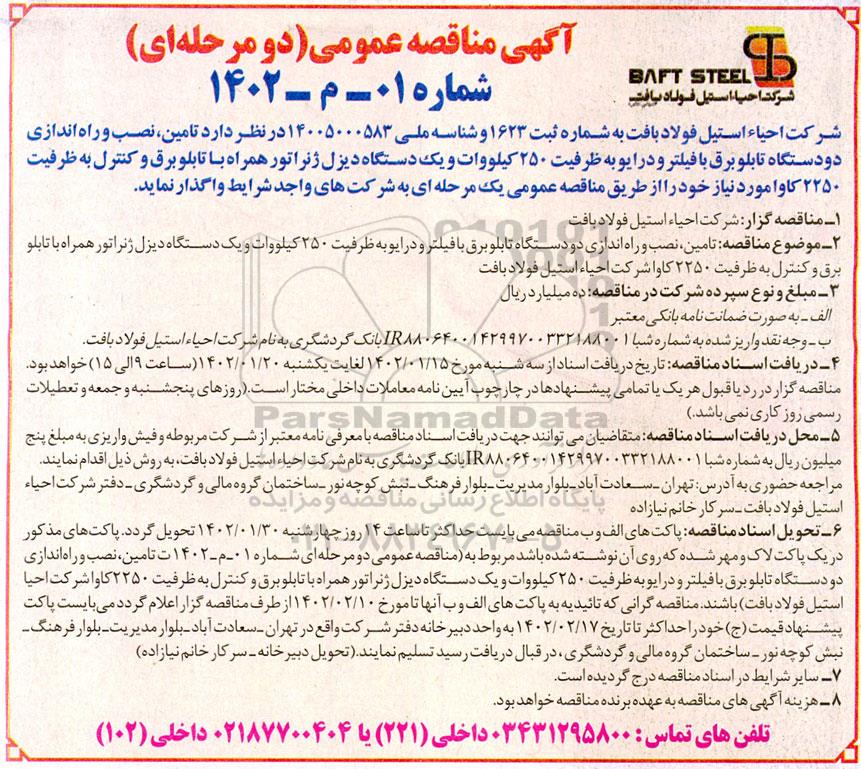 آگهی مناقصه عمومی (دو مرحله‌ای)
شماره ۰۱ ـ م ـ ۱۴۰۲
BAFT STEEL
شرکت احیاء استیل فولاد بافت
شرکت احیاء استیل فولاد بافت به شماره ثبت ۱۶۲۳ و شناسه ملی ۱۴۰۰۵۰۰۰۵۸۳ در نظر دارد تامین، نصب و راه اندازی
دو دستگاه تابلو برق با فیلتر و درایو به ظرفیت ۲۵۰ کیلووات و یک دستگاه دیزل ژنراتور همراه با تابلو برق و کنترل به ظرفیت
۲۲۵۰ کاوا مورد نیاز خود را از طریق مناقصه عمومی یک مرحله ای به شرکت های واجد شرایط واگذار نماید.
۱ـ مناقصه گزار: شرکت احیاء استیل فولاد بافت
۲ـ موضوع مناقصه: تامین، نصب و راه اندازی دو دستگاه تابلو برق با فیلتر و درایو به ظرفیت ۲۵۰ کیلووات و یک دستگاه دیزل ژنراتور همراه با تابلو
برق و کنترل به ظرفیت ۲۲۵۰ کاوا شرکت احیاء استیل فولاد بافت
۳ـ مبلغ و نوع سپرده شرکت در مناقصه: ده میلیارد ریال
الف ـ به صورت ضمانت نامه بانکی معتبر
ب ـ وجه نقد واریز شده به شماره شبا IR۸۸۰۶۴۰۰۱۴۲۹۹۷۰۰۳۳۲۱۸۸۰۰۱ بانک گردشگری به نام شرکت احیاء استیل فولاد بافت.
۴ـ دریافت اسناد مناقصه: تاریخ دریافت اسناد از سه شنبه مورخ ۱۴۰۲/۰۱/۱۵ لغایت یکشنبه ۱۴۰۲/۰۱/۲۰ (ساعت ۹ الی ۱۵) خواهد بود.
مناقصه گزار در رد یا قبول هر یک یا تمامی پیشنهادها در چارچوب آیین نامه معاملات داخلی مختار است. (روزهای پنجشنبه و جمعه و تعطیلات
رسمی روز کاری نمی باشد.)
۵ـ محل دریافت اسناد مناقصه: متقاضیان می توانند جهت دریافت اسناد مناقصه با معرفی نامه معتبر از شرکت مربوطه و فیش واریزی به مبلغ پنج
میلیون ریال به شماره شبا IR۸۸۰۶۴۰۰۱۴۲۹۹۷۰۰۳۳۲۱۸۸۰۰۱ بانک گردشگری به نام شرکت احیاء استیل فولاد بافت، به روش ذیل اقدام نمایند.
مراجعه حضوری به آدرس: تهران ـ سعادت آباد ـ بلوار مدیریت ـ بلوار فرهنگ ـ نبش کوچه نور ـ ساختمان گروه مالی و گردشگری ـ دفتر شرکت احیاء
استیل فولاد بافت ـ سرکار خانم نیازاده
۶ـ تحویل اسناد مناقصه: پاکت های الف و ب مناقصه می بایست حداکثر تا ساعت ۱۴ روز چهارشنبه ۱۴۰۲/۰۱/۳۰ تحویل گردد. پاکت های مذکور
در یک پاکت لاک و مهر شده که روی آن نوشته شده باشد مربوط به (مناقصه عمومی دو مرحله ای شماره ۰۱ـ م ـ ۱۴۰۲ ت تامین، نصب و راه اندازی
دو دستگاه تابلو برق با فیلتر و درایو به ظرفیت ۲۵۰ کیلووات و یک دستگاه دیزل ژنراتور همراه با تابلو برق و کنترل به ظرفیت ۲۲۵۰ کاوا شرکت احیا
استیل فولاد بافت) باشند. مناقصه گرانی که تائیدیه به پاکت های الف و ب آنها تا مورخ ۱۴۰۲/۰۲/۱۰ از طرف مناقصه گزار اعلام گردد می بایست پاکت
پیشنهاد قیمت (ج) خود را حداکثر تا تاریخ ۱۴۰۲/۰۲/۱۷ به واحد دبیرخانه دفتر شرکت واقع در تهران ـ سعادت آباد ـ بلوار مدیریت ـ بلوار فرهنگ ـ
نبش کوچه نور ـ ساختمان گروه مالی و گردشگری، در قبال دریافت رسید تسلیم نمایند. (تحویل دبیرخانه ـ سرکار خانم نیازاده)
۷ـ سایر شرایط در اسناد مناقصه درج گردیده است.
۸ـ هزینه آگهی های مناقصه به عهده برنده مناقصه خواهد بود.
تلفن های تماس: ۰۳۴۳۱۲۹۵۸۰۰ داخلی (۲۲۱) یا ۰۲۱۸۷۷۰۰۴۰۴ داخلی (۱۰۲)
ParsNamadData
پایگاه اطلاع رسانی مناقصه و مزایده